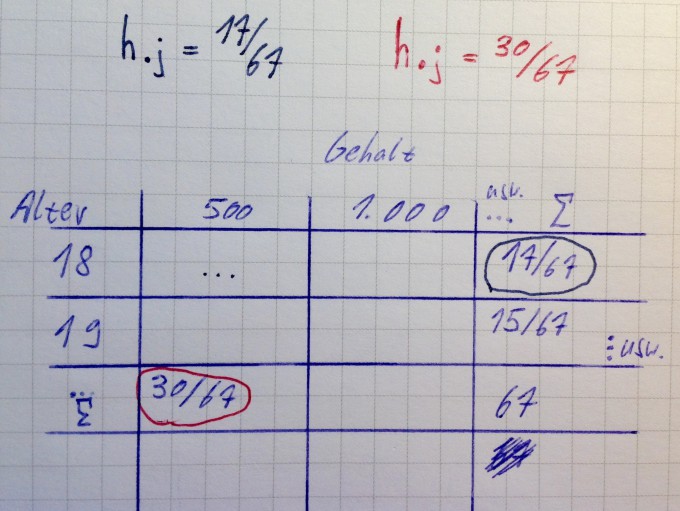 h.j = 17/67 h.j = 30/67
Gehalt
Alter 500 1.000 usw. ... Σ
18 ... 17/67
19 15/67
⋮ usw.
... Σ 30/67 67